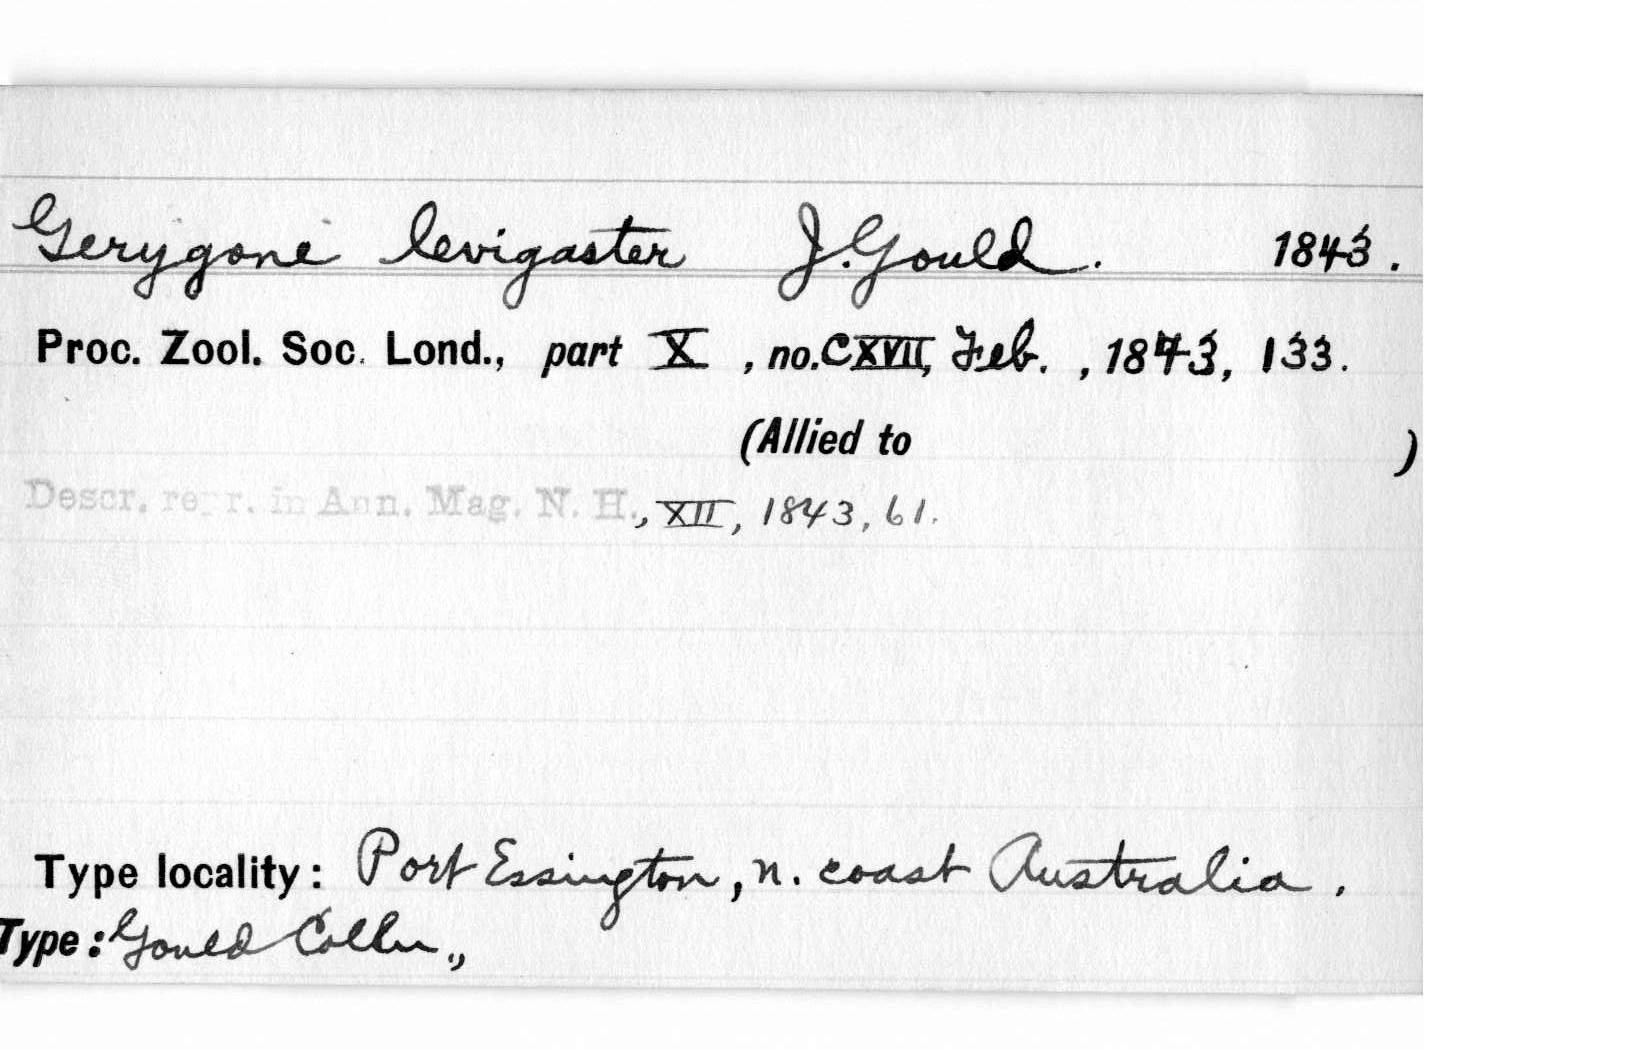 Gerygone levigaster J. Gould. 1843.
Proc. Zool. Soc. Lond., part X, no. CXVII, Feb., 1843, 133.
(Allied to )
Descr. repr. in Ann. Mag. N. H., XII, 1843, 61.
Type locality: Port Essington, n. coast Australia.
Type: Gould Colln.,